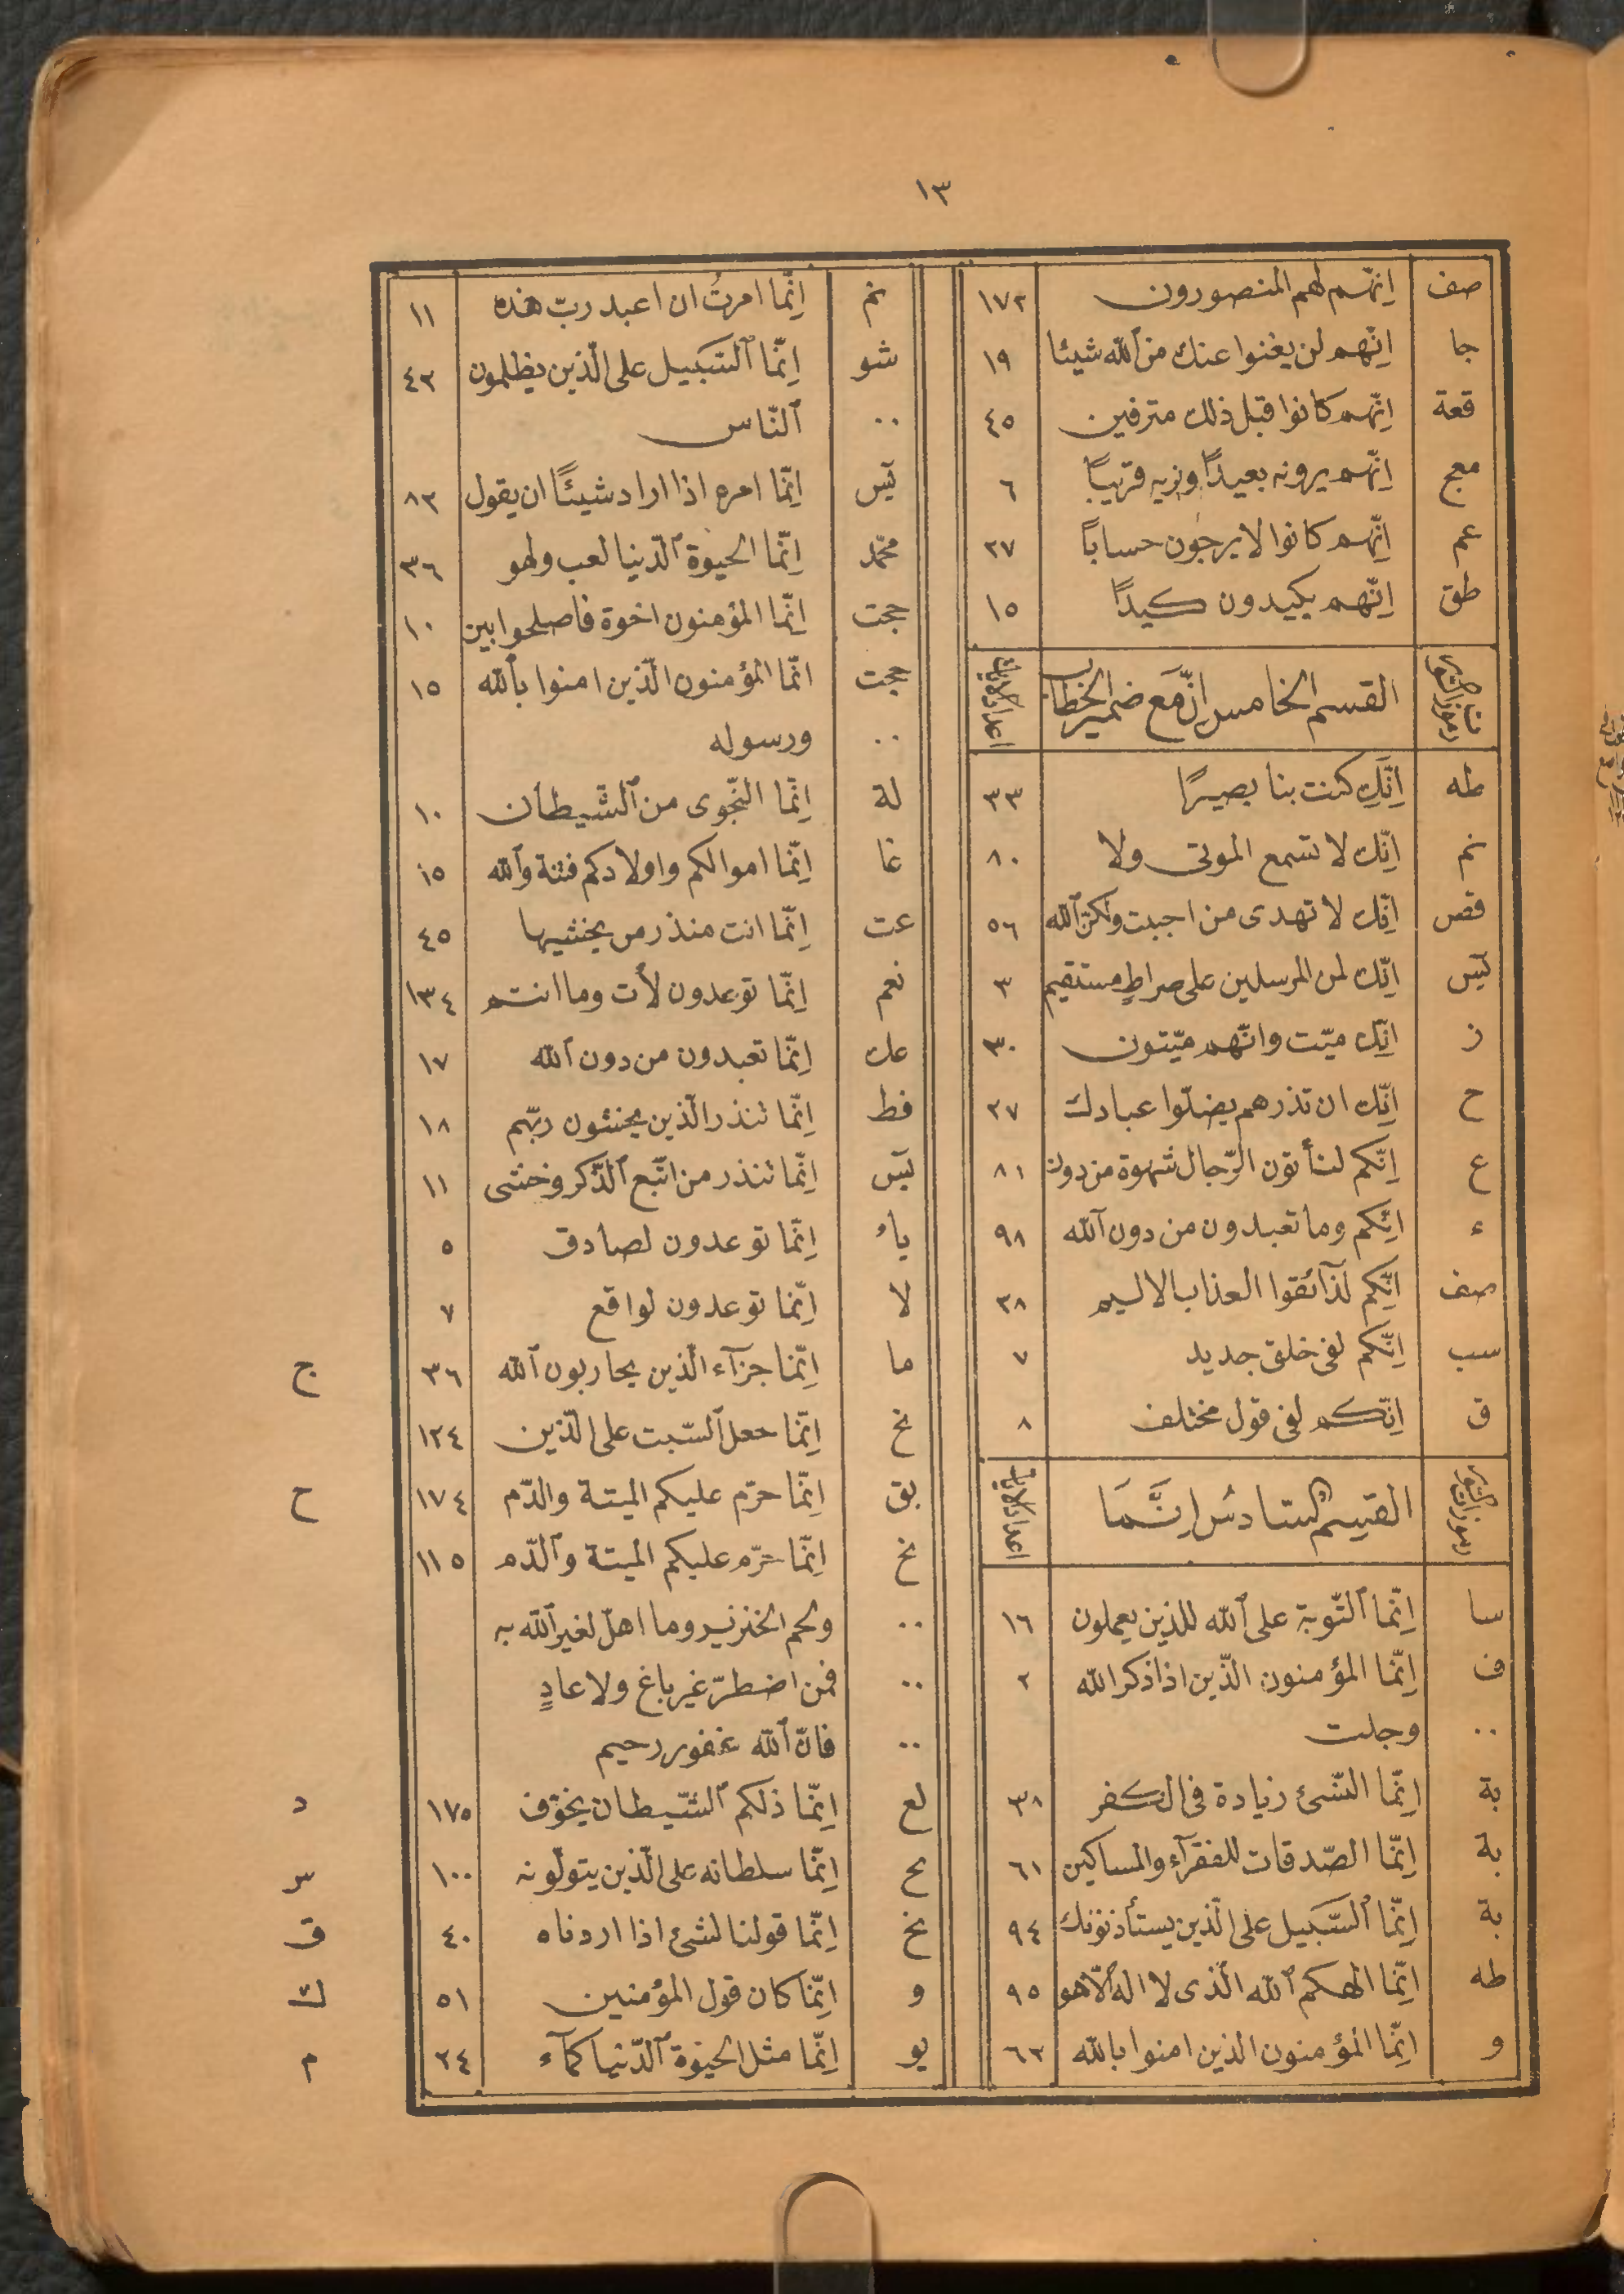 ١٣
صف انّهم لهم المنصورون ١٧٢
جا انّهم لن يغنوا عنك من الله شيئا ١٩
قعة انّهم كانوا قبل ذلك مترفين ٤٥
معج انّهم يرونه بعيدًا ونريه قريبًا ٦
عم انّهم كانوا لا يرجون حسابًا ٢٧
طق انّهم يكيدون كيدًا ١٥
القسم الخامس انّ مع ضمير الخطاب اعداد الايات
طه انّك كنت بنا بصيرًا ٣٣
نم انّك لا تسمع الموتى ولا ٨٠
قص انّك لا تهدى من احببت ولكن الله ٥٦
يس انّك لمن المرسلين على صراطٍ مستقيم ٣
ز انّك ميّت وانّهم ميّتون ٣٠
ح انّك ان تذرهم يضلّوا عبادك ٢٧
ع انّكم لتأتون الرّجال شهوة من دون ٨١
ء انّكم وما تعبدون من دون الله ٩٨
صف انّكم لذآئقوا العذاب الاليم ٣٨
سب انّكم لفى خلق جديد ٧
ق انّكم لفى قول مختلف ٨
رموزات السّور القسم السّادس انّما اعداد الايات
سا انّما التّوبة على الله للذين يعملون ١٦
ف انّما المؤمنون الّذين اذا ذكر الله ٢
٠٠ وجلت
بة انّما النّسئ زيادة فى الكفر ٣٨
بة انّما الصّدقات للفقرآء والمساكين ٦١
بة انّما السّبيل على الّذين يستأذنونك ٩٤
طه انّما الهكم الله الّذى لا اله الّا هو ٩٥
و انّما المؤمنون الذين امنوا بالله ٦٢
نم انّما امرتُ ان اعبد ربّ هذه ١١
شو انّما السّبيل على الّذين يظلمون ٤٢
٠٠ النّاس
يس انّما امره اذا اراد شيئًا ان يقول ٨٢
محمّد انّما الحيوة الدّنيا لعب ولهو ٣٦
حجت انّما المؤمنون اخوة فاصلحوا بين ١٠
حجت انّما المؤمنون الّذين امنوا بالله ١٥
٠٠ ورسوله
لة انّما النّجوى من الشّيطان ١٠
غا انّما اموالكم واولادكم فتنة والله ١٥
عت انّما انت منذر من يخشيها ٤٥
نعم انّما توعدون لأت وما انتم ١٣٤
عك انّما تعبدون من دون الله ١٧
فط انّما تنذر الّذين يخشون ربّهم ١٨
يس انّما تنذر من اتّبع الذّكر وخشى ١١
ياء انّما توعدون لصادق ٥
لا انّما توعدون لواقع ٧
ما انّما جزآء الّذين يحاربون الله ٣٦ ج
نخ انّما جعل السّبت على الّذين ١٢٤
بق انّما حرّم عليكم الميتة والدّم ١٧٤ ح
نخ انّما حرّم عليكم الميتة والدّم ١١٥
٠٠ ولحم الخنزير وما اهلّ لغير الله به
٠٠ فمن اضطرّ غير باغ ولا عادٍ
٠٠ فانّ الله غفور رحيم
لع انّما ذلكم الشّيطان يخوّف ١٧٥ د
نخ انّما سلطانه على الّذين يتولّونه ١٠٠ س
نخ انّما قولنا لشئ اذا اردناه ٤٠ ق
و انّما كان قول المؤمنين ٥١ ك
يو انّما مثل الحيوة الدّنيا كمآء ٢٤ م